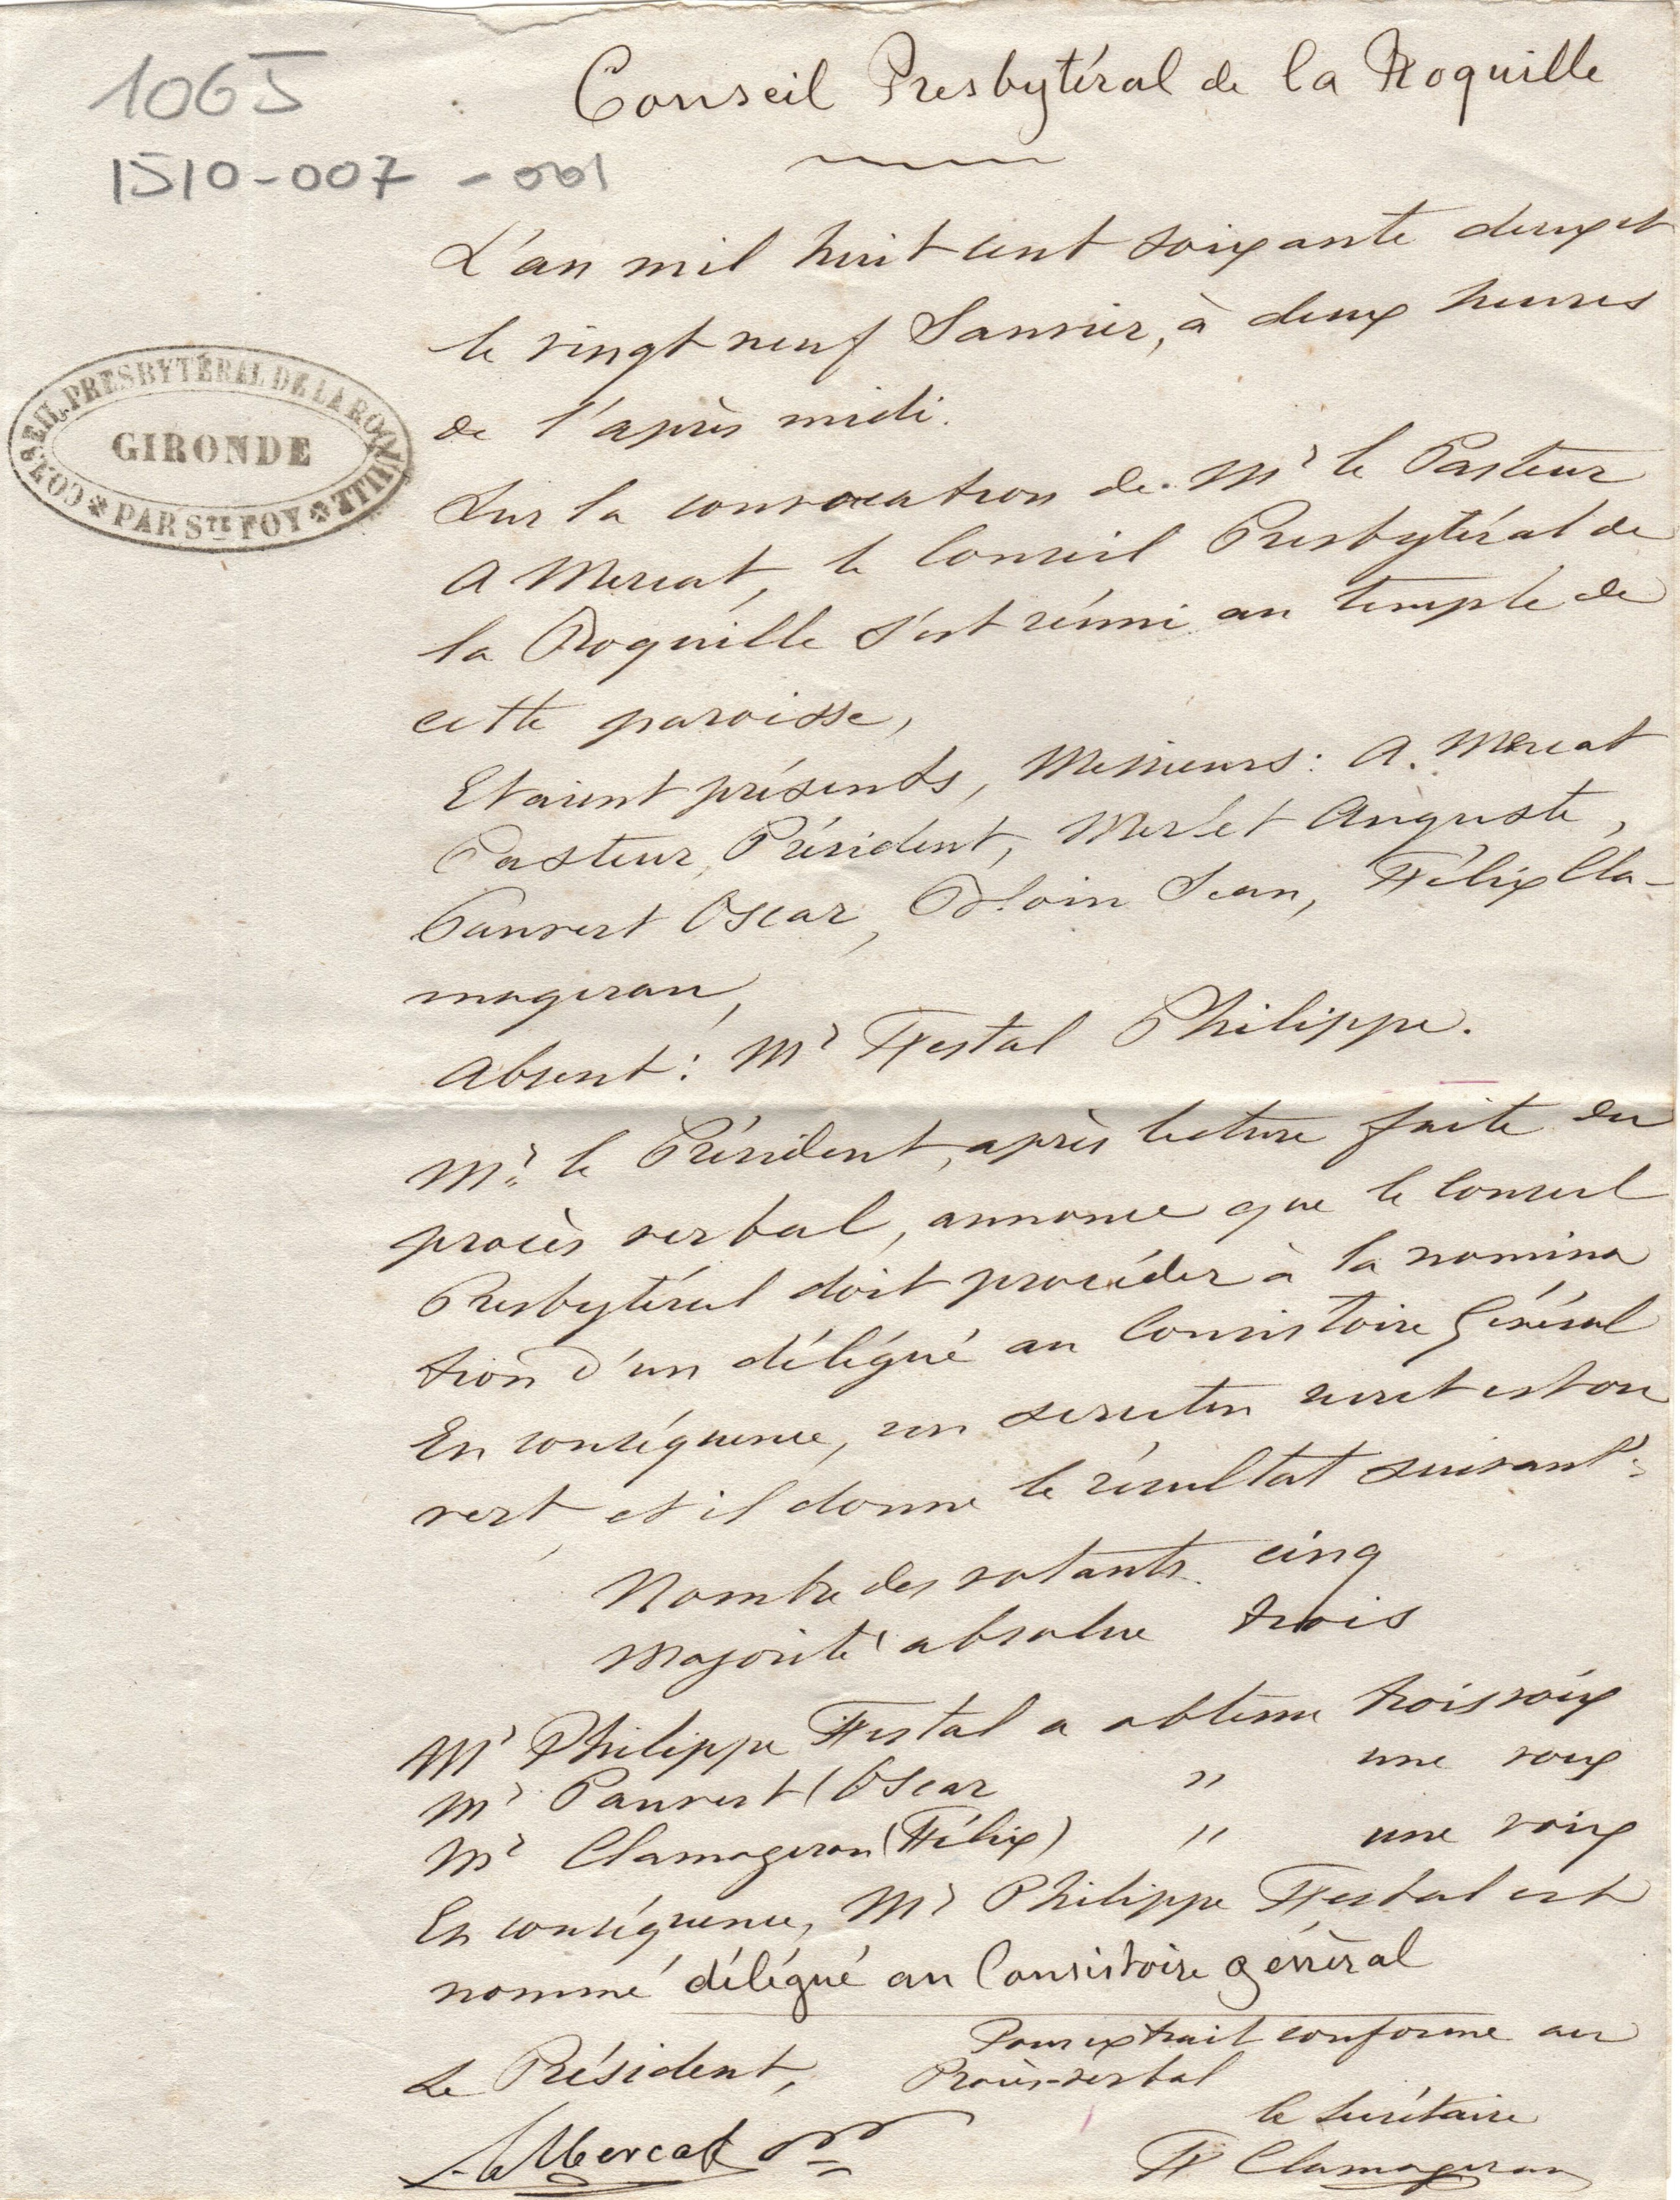 106J
1510-007-001
Conseil Presbytéral de la Roquille
L'an mil huit cent soixante deux, et
le vingt neuf Janvier, à deux heures
de l'après midi.
CONSEIL PRESBYTÉRAL DE LA ROQUILLE
GIRONDE
PAR STE FOY
Sur la convocation de Mr le Pasteur
A Mercat, le Conseil Presbytéral de
la Roquille s'est réuni au temple de
cette paroisse,
Etaient présents, Messieurs: A. Mercat
Pasteur, Président, Merlet Auguste,
Pauvert Oscar, Jean, Félix Cla-
mageran,
Absent: Mr Festal Philippe.
Mr le Président, après lecture faite du
procès verbal, annonce que le Conseil
Presbytéral doit procéder à la nomina
tion d'un délégué au Consistoire Général
En conséquence, un scrutin secret est ou
vert, et il donne le résultat suivant:
Nombre des votants cinq
Majorité absolue trois
Mr Philippe Festal a obtenu trois voix
Mr Pauvert (Oscar " une voix
Mr Clamageran (Félix) " une voix
En conséquence, Mr Philippe Festal est
nommé délégué au Consistoire général
Pour extrait conforme au
Le Président, Procès-verbal
le secrétaire
A Mercat
F Clamageran